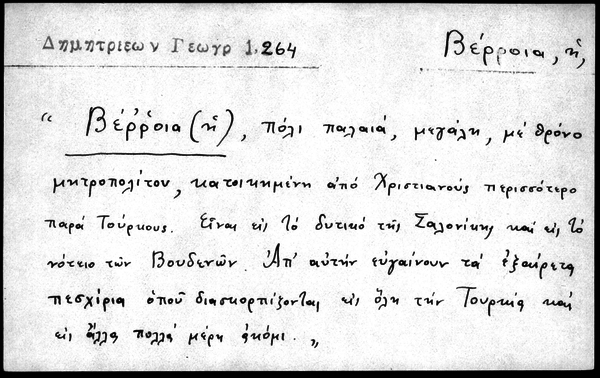 Δημητριεων Γεωγρ 1,264
Βέρροια, ἡ,
“ Βέῤῥοια (ἡ), πόλι παλαιά, μεγάλη, μέ θρόνο
μητροπολίτου, κατοικημένη ἀπό Χριστιανούς περισσότερο
παρά Τούρκους. Εἶναι εἰς τό δυτικό τῆς Σαλονίκης καί εἰς τό
νότειο τῶν Βουδενῶν. Ἀπ' αὐτήν εὐγαίνουν τά ἐξαίρετα
πεσχίρια ὁποῦ διασκορπίζονται εἰς ὅλη τήν Τουρκία καί
εἰς ἄλλα πολλά μέρη ἀκόμι. „